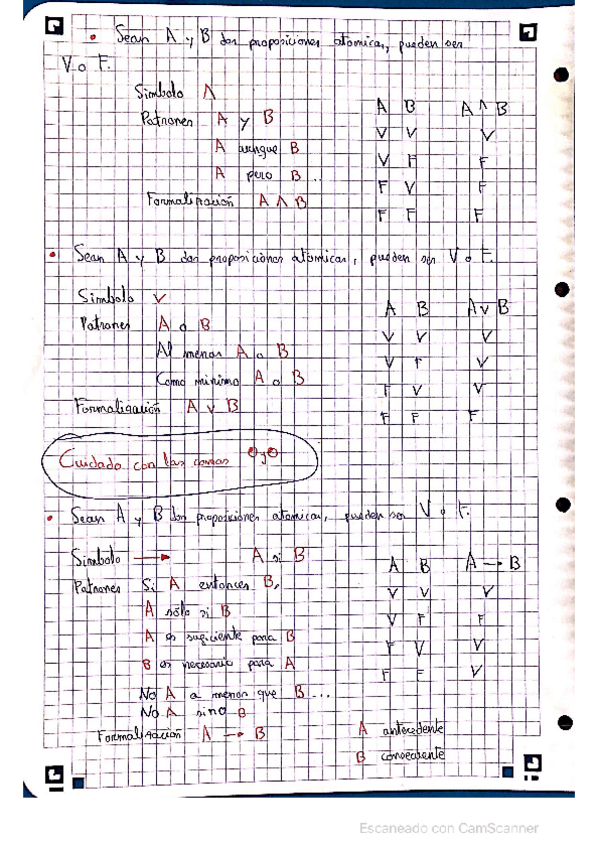 • Sean A y B dos proposiciones atomicas, pueden ser
V o F.
Simbolo ∧
Patrones A y B
A aunque B
A pero B ...
Formalización A ∧ B
A B A ∧ B
V V V
V F F
F V F
F F F
• Sean A y B dos proposiciones atomicas, pueden ser V o F.
Simbolo ∨
Patrones A o B
Al menos A o B
Como mínimo A o B
Formalización A ∨ B
A B A ∨ B
V V V
V F V
F V V
F F F
Cuidado con las comas
• Sean A y B dos proposiciones atomicas, pueden ser V o F.
Simbolo → A si B
Patrones Si A entonces B,
A sólo si B
A es suficiente para B
B es necesario para A
No A a menos que B ...
No A sino B
Formalización A → B
A B A → B
V V V
V F F
F V V
F F V
A antecedente
B consecuente
Escaneado con CamScanner